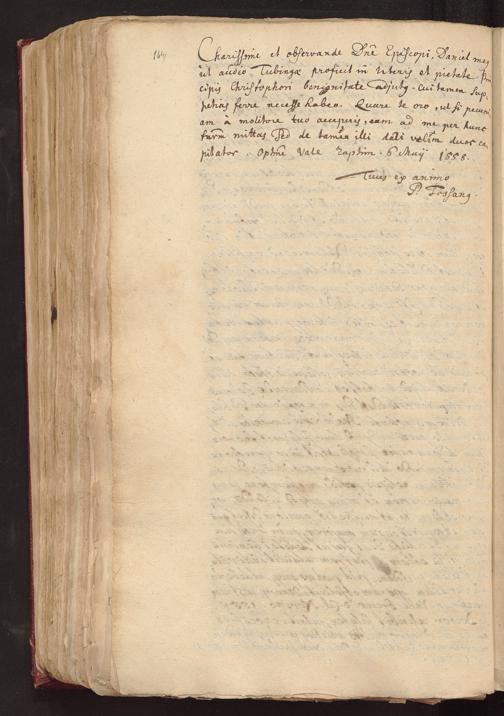 164
Charissime et observande Dne Episcopi, Daniel meus
ut audio Tubingæ proficit in literis et pietate Prin
cipis Christophori benignitate adjutus. Cui tamen sup
petias ferre necesse habeo. Quare te oro, ut si pecuni
am à molitore tuo acceperis, eam ad me per hunc
mittas sed de tamen illi dari velim duos ca
pitatos. Optime Vale raptim. 6 Maij 1558.
Tuus ex animo
P. Tossanus.